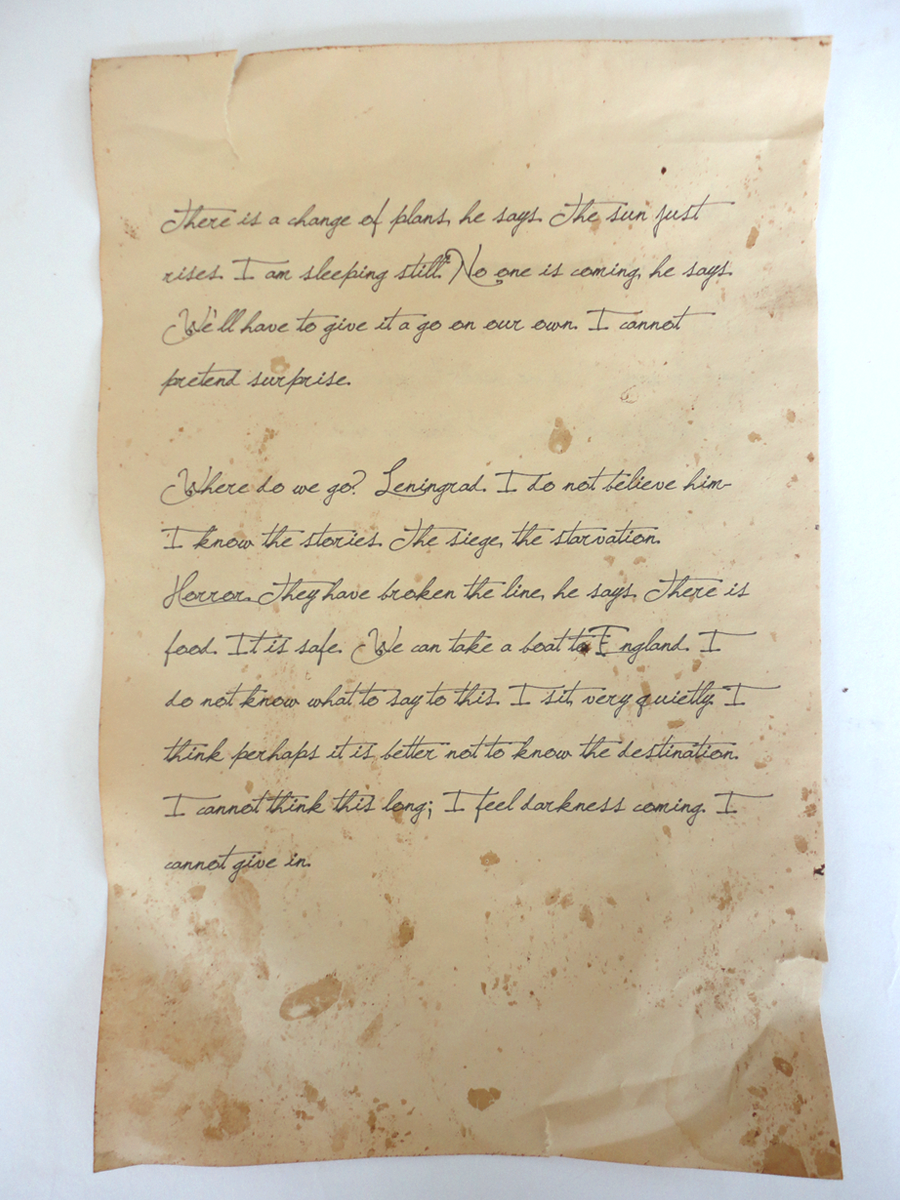 There is a change of plans, he says. The sun just
rises. I am sleeping still. No one is coming, he says.
We'll have to give it a go on our own. I cannot
pretend surprise.
Where do we go? Leningrad. I do not believe him-
I know the stories. The siege, the starvation.
Horror. They have broken the line, he says. There is
food. It is safe. We can take a boat to England. I
do not know what to say to this. I sit, very quietly. I
think perhaps it is better not to know the destination.
I cannot think this long; I feel darkness coming. I
cannot give in.